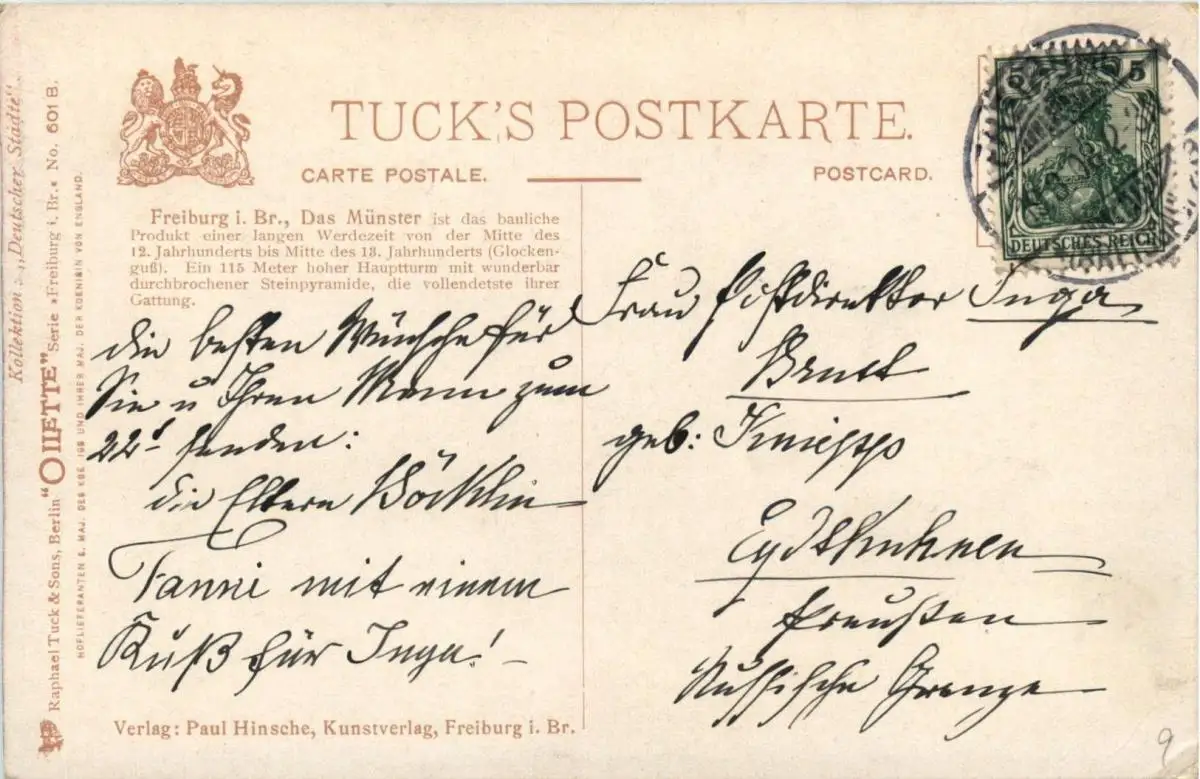 TUCK'S POSTKARTE.
CARTE POSTALE.
POSTCARD.
Freiburg i. Br., Das Münster ist das bauliche
Produkt einer langen Werdezeit von der Mitte des
12. Jahrhunderts bis Mitte des 13. Jahrhunderts (Glocken-
guß). Ein 115 Meter hoher Hauptturm mit wunderbar
durchbrochener Steinpyramide, die vollendetste ihrer
Gattung.
die besten Wünsche für
Sie u Ihren Mann zum
22t senden:
die Eltern Böcklin
Fanni mit einem
Kuß für Inga! –
Verlag: Paul Hinsche, Kunstverlag, Freiburg i. Br.
5 5
DEUTSCHES REICH
Frau Postdirektor Inga
geb:
Eydtkuhnen
Preußen
Russische Grenze
9
Kollektion: „Deutscher Städte“.
Raphael Tuck & Sons, Berlin "OILETTE" Serie »Freiburg i. Br.« No. 601 B.
HOFLIEFERANTEN S. MAJ. DES KGE. IGS UND IHRER MAJ. DER KOENIGIN VON ENGLAND.